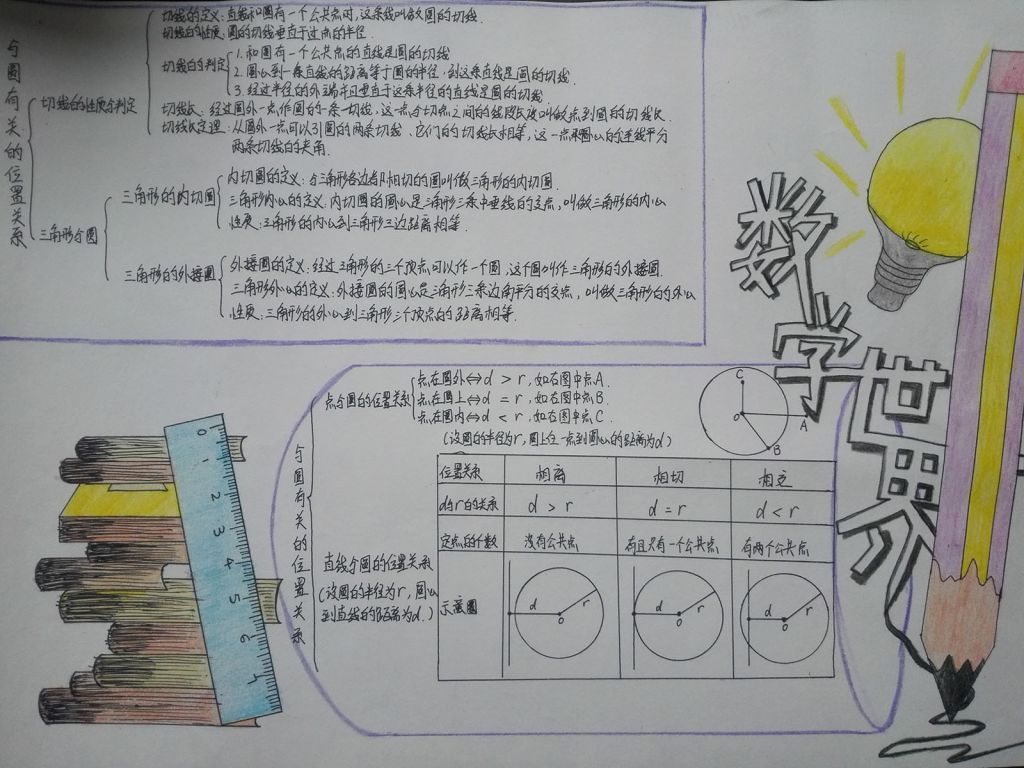 与圆有关的位置关系
切线的性质与判定
切线的定义:直线和圆有一个公共点时,这条线叫做圆的切线.
切线的性质:圆的切线垂直于过点的半径.
切线的判定
1.和圆有一个公共点的直线是圆的切线
2.圆心到一条直线的距离等于圆的半径,则这条直线是圆的切线.
3.经过半径的外端并且垂直于这条半径的直线是圆的切线.
切线长:经过圆外一点作圆的一条切线,这一点与切点之间的线段长度叫做点到圆的切线长.
切线长定理:从圆外一点可以引圆的两条切线,它们的切线长相等,这一点和圆心的连线平分
两条切线的夹角.
三角形与圆
三角形的内切圆
内切圆的定义:与三角形各边都相切的圆叫做三角形的内切圆.
三角形内心的定义:内切圆的圆心是三角形三条中垂线的交点,叫做三角形的内心
性质:三角形的内心到三角形三边距离相等.
三角形的外接圆
外接圆的定义:经过三角形的三个顶点可以作一个圆,这个圆叫作三角形的外接圆.
三角形外心的定义:外接圆的圆心是三角形三条边角平分的交点,叫做三角形的外心
性质:三角形的外心到三角形三个顶点的距离相等.
数学世界
与圆有关的位置关系
点与圆的位置关系
点在圆外⇔d > r,如右图中点A.
点在圆上⇔d = r,如右图中点B.
点在圆内⇔d < r,如右图中点C.
(设圆的半径为r,圆上任一点到圆心的距离为d)
C
O
A
B
直线与圆的位置关系
(设圆的半径为r,圆心
到直线的距离为d.)
位置关系 相离 相切 相交
d与r的关系 d > r d = r d < r
交点的个数 没有公共点 有且只有一个公共点 有两个公共点
示意图 d r O d r O d r O
0 1 2 3 4 5 6 7